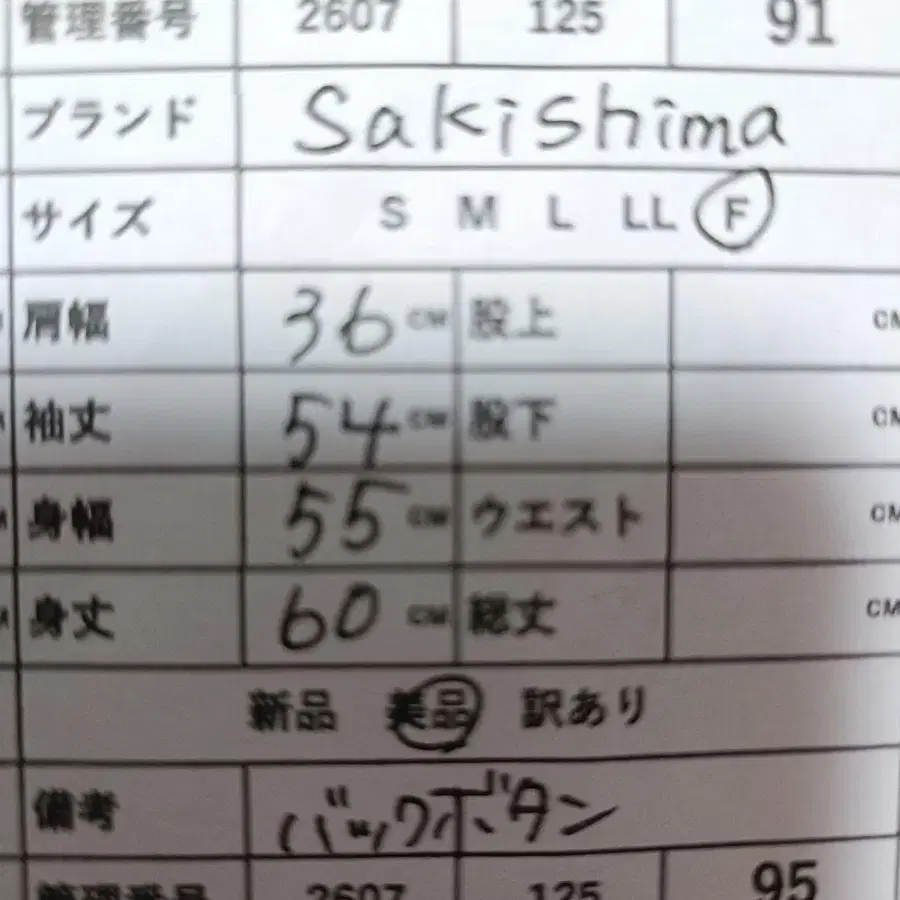 管理番号 2607 125 91
ブランド Sakishima
サイズ S M L LL F
肩幅 36 CM 股上 CM
袖丈 54 CM 股下 CM
身幅 55 CM ウエスト CM
身丈 60 CM 総丈 CM
新品 美品 訳あり
備考 バックボタン
管理番号 2607 125 95